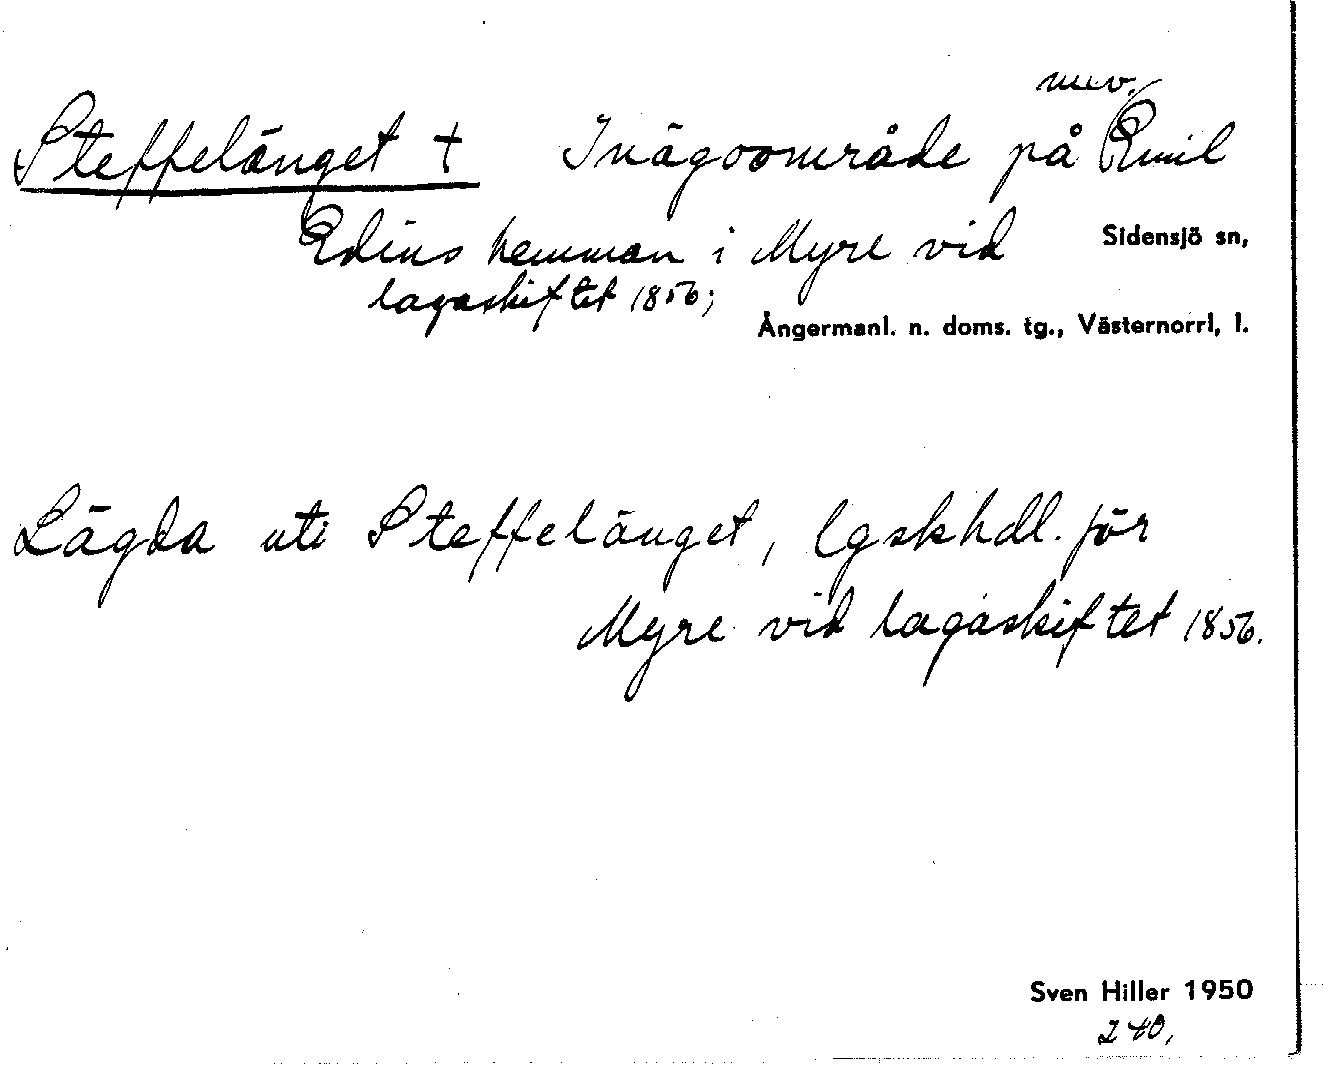 nuv.
Steffelänget + Inägoområde på Emil
Edins hemman i Myre vid
Sidensjö sn,
lagaskiftet 1856;
Ångermanl. n. doms. tg., Västernorrl, l.
Lägda uti Steffelänget, lgskhdl. för
Myre vid lagaskiftet 1856.
Sven Hiller 1950
240,